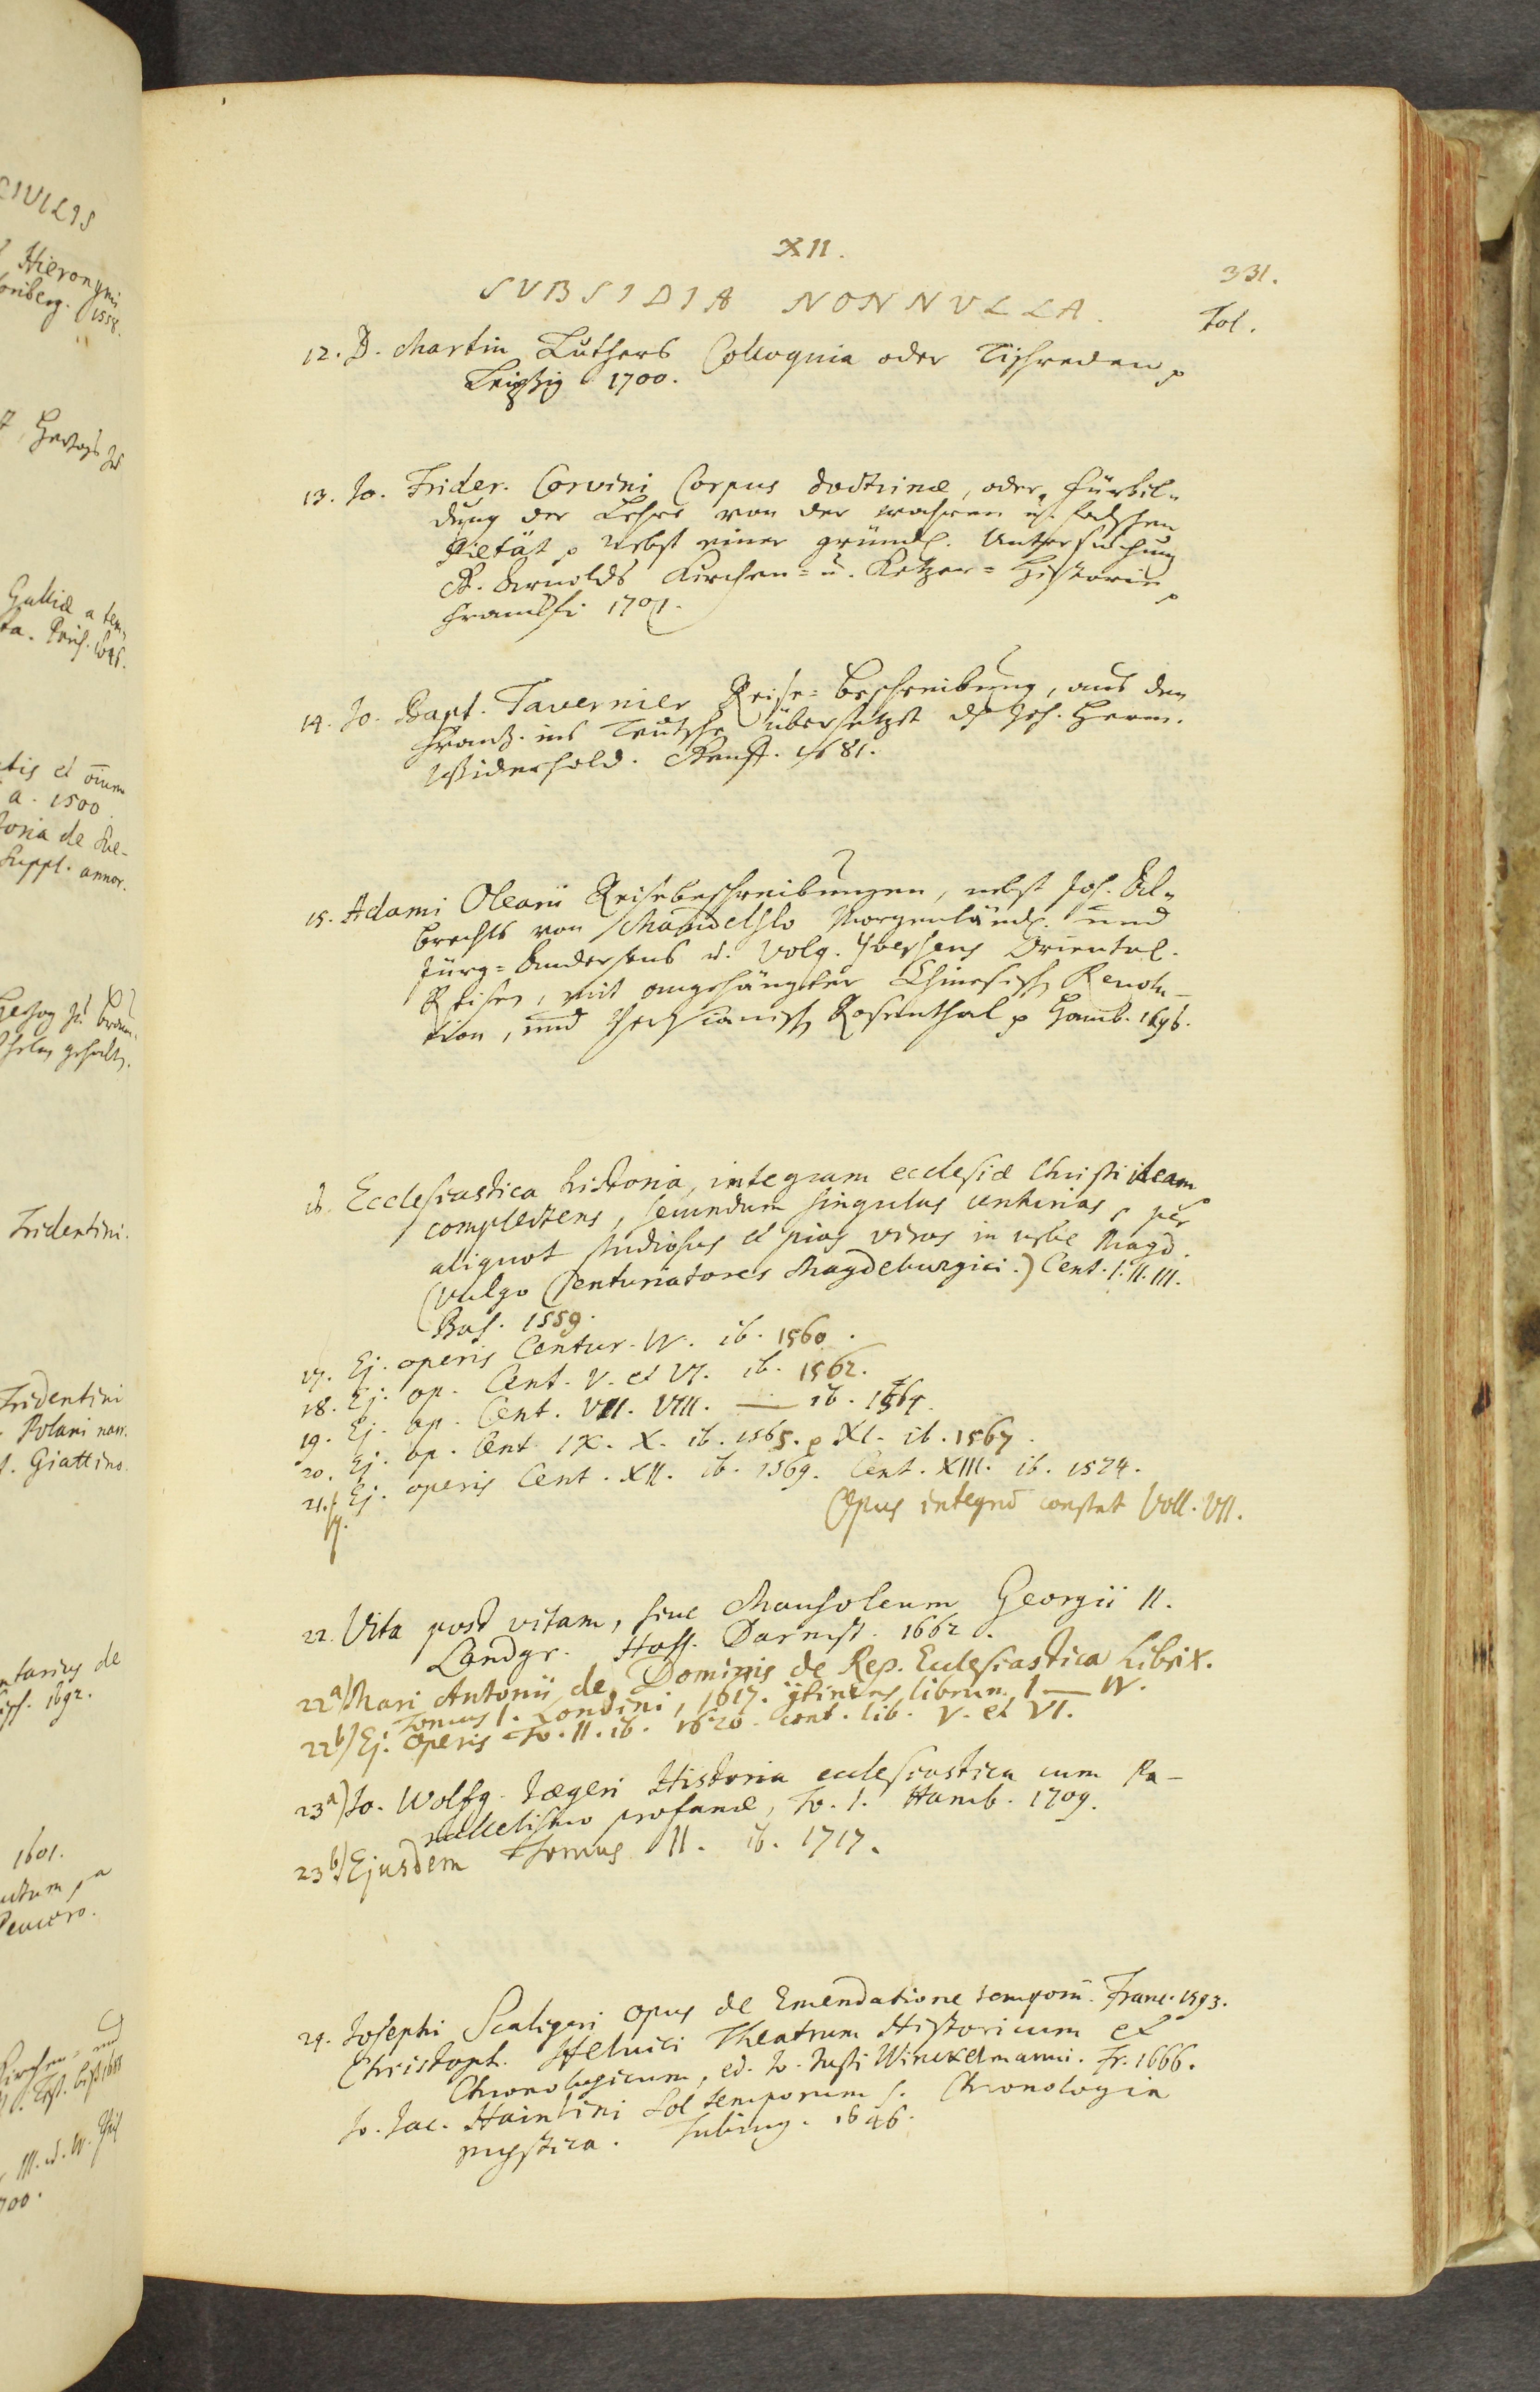 CIVILIS
Hieronymi
1558.
Hertzogs
Galliæ a tem-
1500
toria de
Suppl. annor.
Tridentini.
Tridentini
Polani
Giattino.
de
1692.
1601.
XII.
331.
SVBSIDIA NONNVLLA.
Fol.
12. D. Martin Luthers Colloquia oder Tischreden
Leipzig 1700.
13. Jo. Frider. Corvini Corpus doctrinæ, oder Fürbil-
dung der Lehre von der wahren u. falschen
Pietät nebst einer gründl. Untersuchung
G. Arnolds Kirchen= u. Ketzer= Historie
Franckf. 1701.
14. Jo. Bapt. Tavernier Reise=Beschreibung, aus dem
Frantz. ins Teutsche übersetzt d. Joh. Herm.
Widerhold. Genff. 1681.
15. Adami Olearii Reisebeschreibungen, nebst Joh. Al-
brechts von Mandelslo Morgenländ. und
Jürg=Andersens u. Volq. Yversens Oriental.
Reisen, mit angehängter Chinesisch Revolu-
tion, und Persianisch Rosenthal Hamb. 1696.
16. Ecclesiastica historia, integram ecclesiæ Christi ideam
complectens, secundum singulas centurias, per
aliquot studiosos et pios viros in urbe Magd.
(vulgo Centuriatores Magdeburgici.) Cent. I. II. III.
Bas. 1559.
17. Ej. operis Centur. IV. ib. 1560.
18. Ej. op. Cent. V. et VI. ib. 1562.
19. Ej. op. Cent. VII. VIII. — ib. 1564.
20. Ej. op. Cent. IX. X. ib. 1565. XI. ib. 1567.
21. Ej. operis Cent. XII. ib. 1569. Cent. XIII. ib. 1574.
Opus integrū constat Voll. VII.
22. Vita post vitam, sive Mausoleum Georgii II.
Landgr. Hass. Darmst. 1662.
22a) Mari Antonii de Dominis de Rep. Ecclesiastica Libri X.
Tomus I. Londini, 1617. librum I — IV.
22b) Ej. operis To. II. ib. 1620. cont. lib. V. et VI.
23a) Jo. Wolfg. Jægeri Historia ecclesiastica cum Pa-
rallelismo profanæ, To. I. Hamb. 1709.
23b) Ejusdem Tomus II. ib. 1717.
24. Josephi Scaligeri opus de Emendatione temporū. Franc. 1593.
Christoph. Helvici Theatrum Historicum et
Chronologicum, ed. Jo. Justi Winckelmanni. Fr. 1666.
Jo. Jac. Hainlini Sol temporum s. Chronologia
mystica. Tubing. 1646.